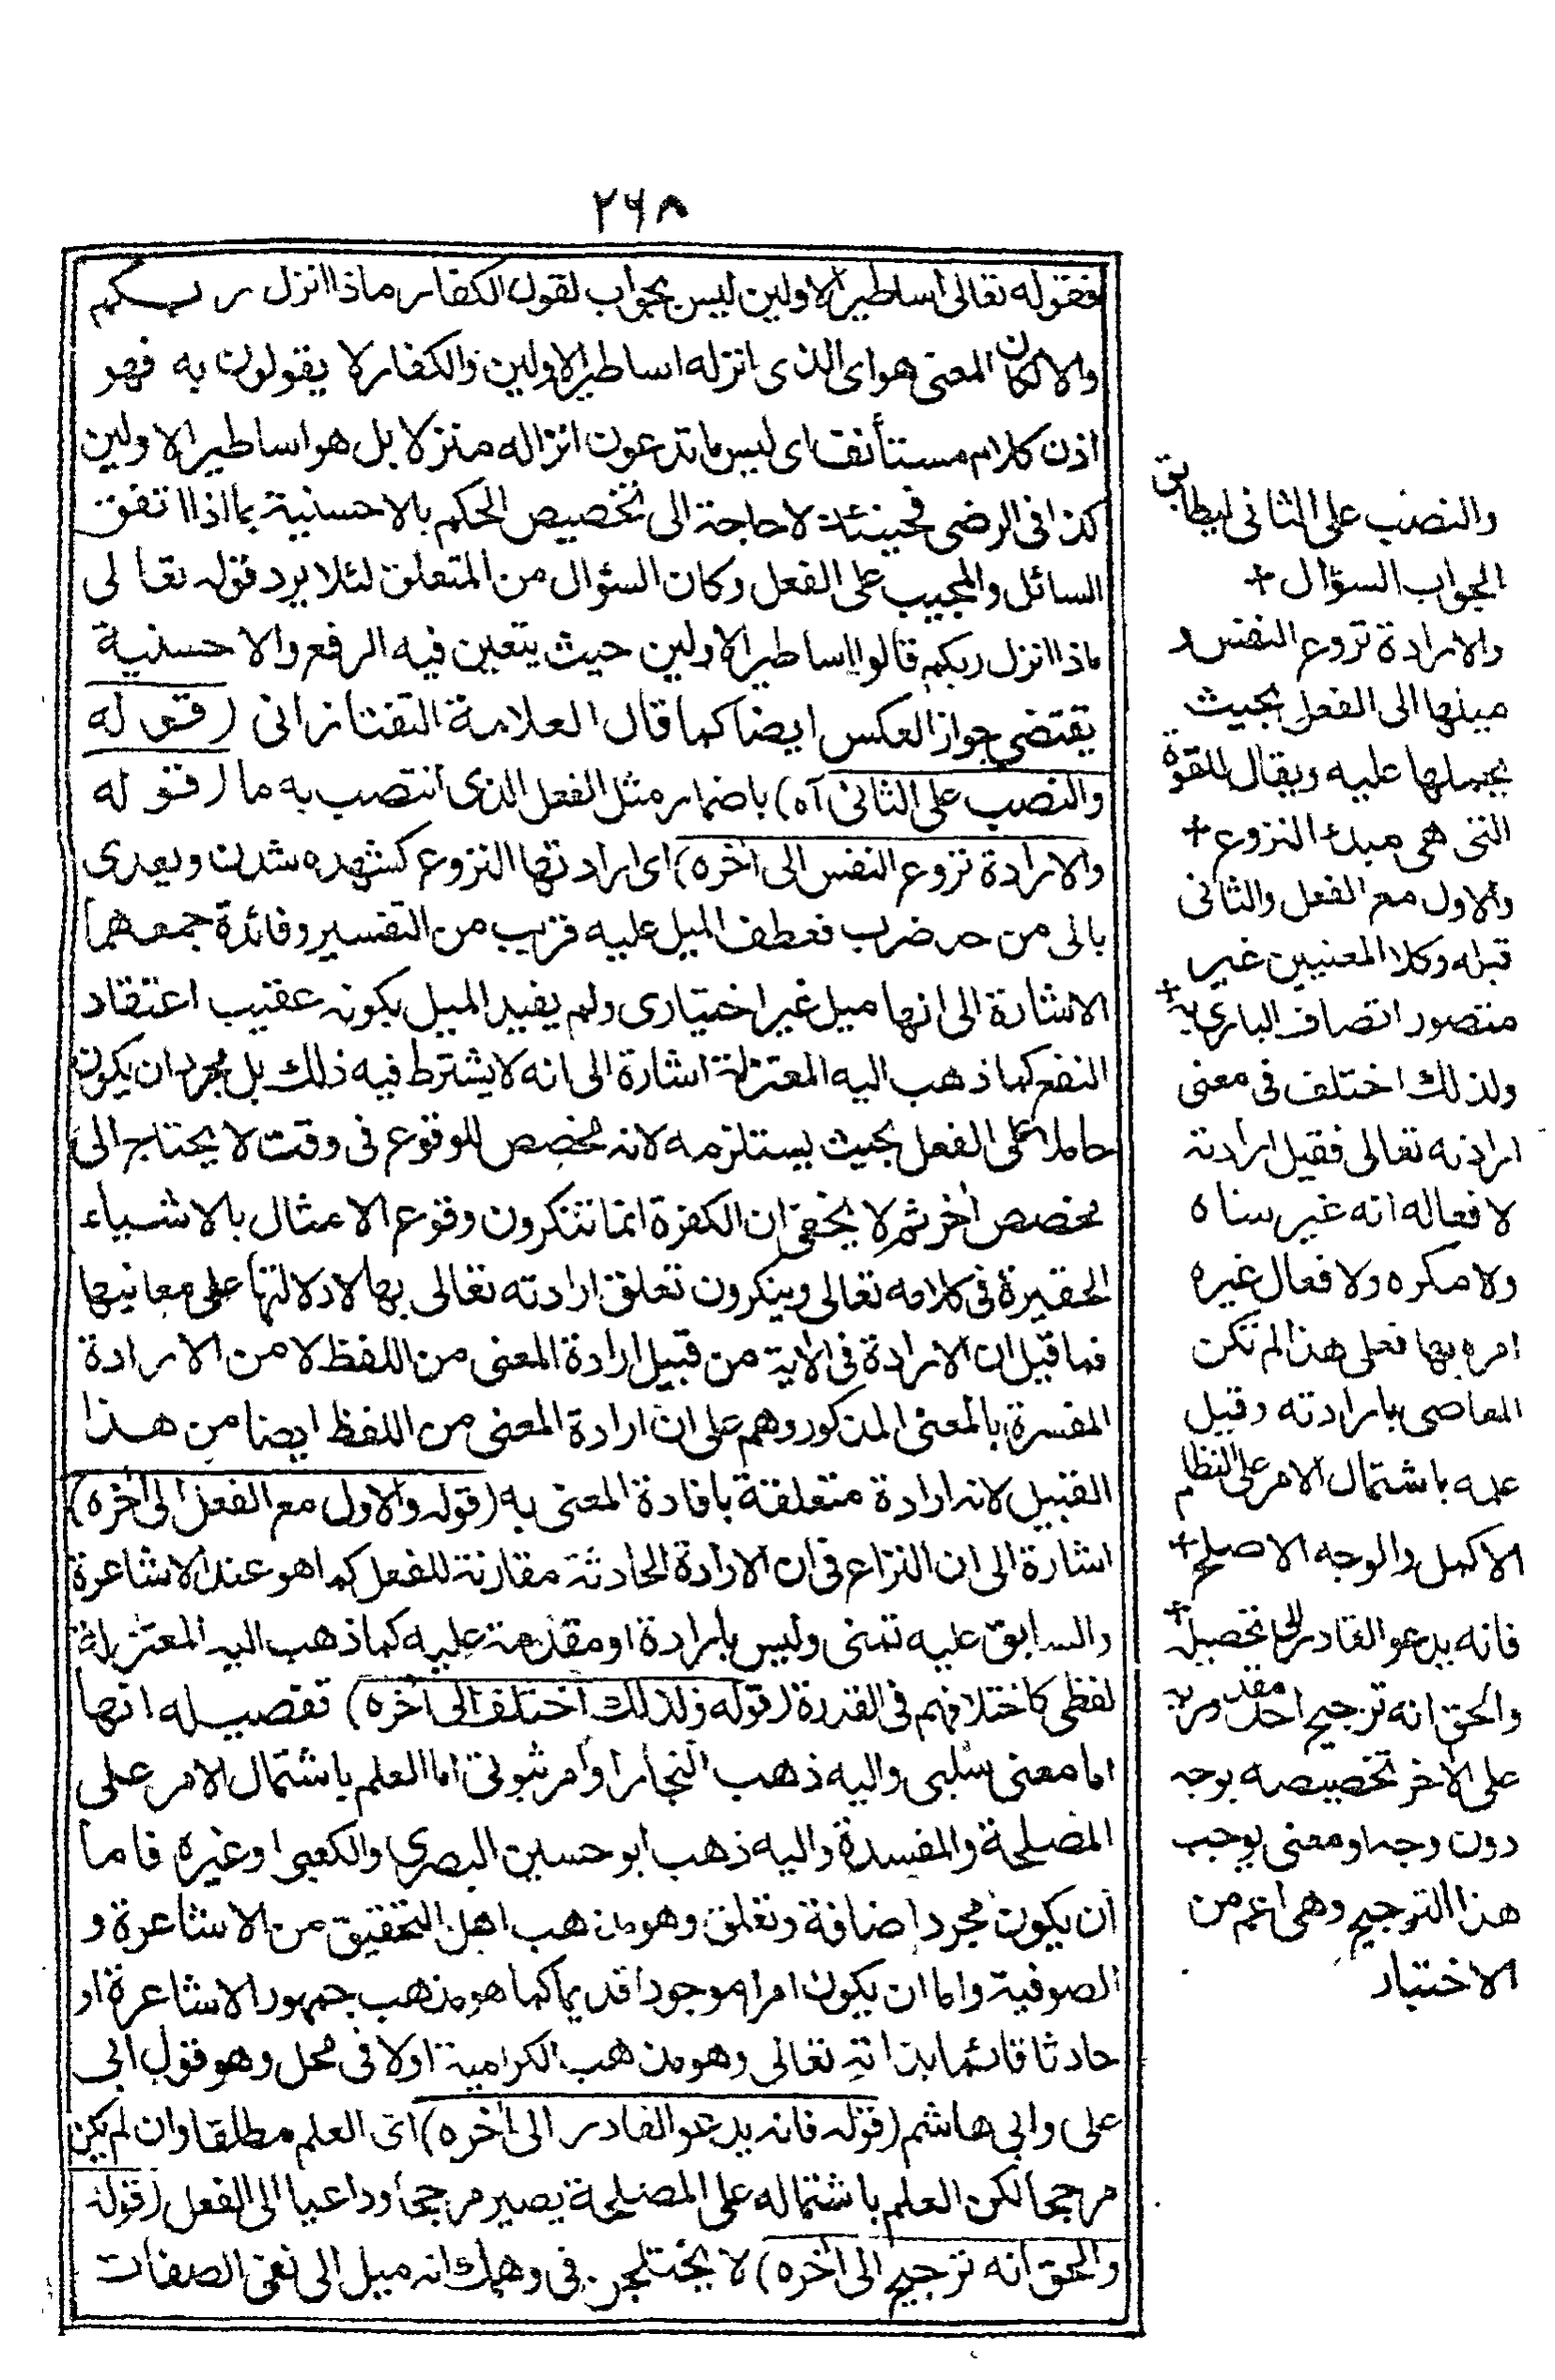 ٢٦٨
فقوله تعالى اساطير الاولين ليس بجواب لقول الكفار ماذا انزل ربكم
والا لكان المعنى هو اى الذى انزله اساطير الاولين والكفار لا يقولون به فهو
اذن كلام مستأنف اى ليس ما تدعون انزاله منزلا بل هو اساطير الاولين
كذا فى الرضى فحينئذ لا حاجة الى تخصيص الحكم بالاحسنية بما اذا اتفق
السائل والمجيب على الفعل وكان السؤال من المتعلق لئلا يرد قوله تعالى
ماذا انزل ربكم قالوا اساطير الاولين حيث يتعين فيه الرفع والاحسنية
يقتضى جواز العكس ايضا كما قال العلامة التفتازانى (قوله
والنصب على الثانى آه) باضمار مثل الفعل الذى انتصب به ما (قوله
والارادة نزوع النفس الى آخره) اى ارادتها النزوع كشهده شدن ويعدى
بالى من حد ضرب فعطف الميل عليه قريب من التفسير وفائدة جمعهما
الاشارة الى انها ميل غير اختيارى ولم يفيد الميل بكونه عقيب اعتقاد
النفع كما ذهب اليه المعتزلة اشارة الى انه لا يشترط فيه ذلك بل مجرد ان يكون
حاملا على الفعل بحيث يستلزمه لانه مخصص للوقوع فى وقت لا يحتاج الى
مخصص آخر ثم لا يخفى ان الكفرة انما تنكرون وقوع الامثال بالاشياء
الحقيرة فى كلامه تعالى وينكرون تعلق ارادته تعالى بها لا دلالتها على معانيها
فما قيل ان الارادة فى الاية من قبيل ارادة المعنى من اللفظ لا من الارادة
المفسرة بالمعنى المذكور وهم على ان ارادة المعنى من اللفظ ايضا من هذا
القبيل لانه ارادة متعلقة بافادة المعنى به (قوله والاول مع الفعل الى آخره)
اشارة الى ان النزاع فى ان الارادة الحادثة مقارنة للفعل كما هو عند الاشاعرة
والسابق عليه تمنى وليس بارادة او مقدمة عليه كما ذهب اليه المعتزلة
لفظى كاختلافهم فى القدرة (قوله ولذلك اختلف الى آخره) تفصيله انها
اما معنى سلبى واليه ذهب النجار او امر ثبوتى اما العلم باشتمال الامر على
المصلحة والمفسدة واليه ذهب ابو حسين البصرى والكعبى او غيره فاما
ان يكون مجرد اضافة وتعلق وهو مذهب اهل التحقيق من الاشاعرة و
الصوفية واما ان يكون امرا موجودا قديما كما هو مذهب جمهور الاشاعرة او
حادثا قائما بذاته تعالى وهو مذهب الكرامية او لا فى محل وهو قول ابى
على وابى هاشم (قوله فانه يدعو القادر الى آخره) اى العلم مطلقا وان لم يكن
مرجحا لكن العلم باشتماله على المصلحة يصير مرجحا وداعيا الى الفعل (قوله
والحق انه ترجيح الى آخره) لا يختلجن فى وهمك انه ميل الى نفى الصفات
والنصب على الثانى ليطابق
الجواب السؤال +
والارادة نزوع النفس و
ميلها الى الفعل بحيث
يحملها عليه ويقال للقوة
التى هى مبدء النزوع +
والاول مع الفعل والثانى
قبله وكلا المعنيين غير
متصور اتصاف البارى به +
ولذلك اختلف فى معنى
ارادته تعالى فقيل ارادته
لافعاله انه غير ساه
ولا مكره ولافعال غيره
امره بها فعلى هذا لم تكن
المعاصى بارادته وقيل
علمه باشتمال الامر على النظام
الاكمل والوجه الاصلح +
فانه يدعو القادر الى تحصيله +
والحق انه ترجيح احد مقدوريه
على الآخر تخصيصه بوجه
دون وجه او معنى يوجب
هذا الترجيح وهى اعم من
الاختيار